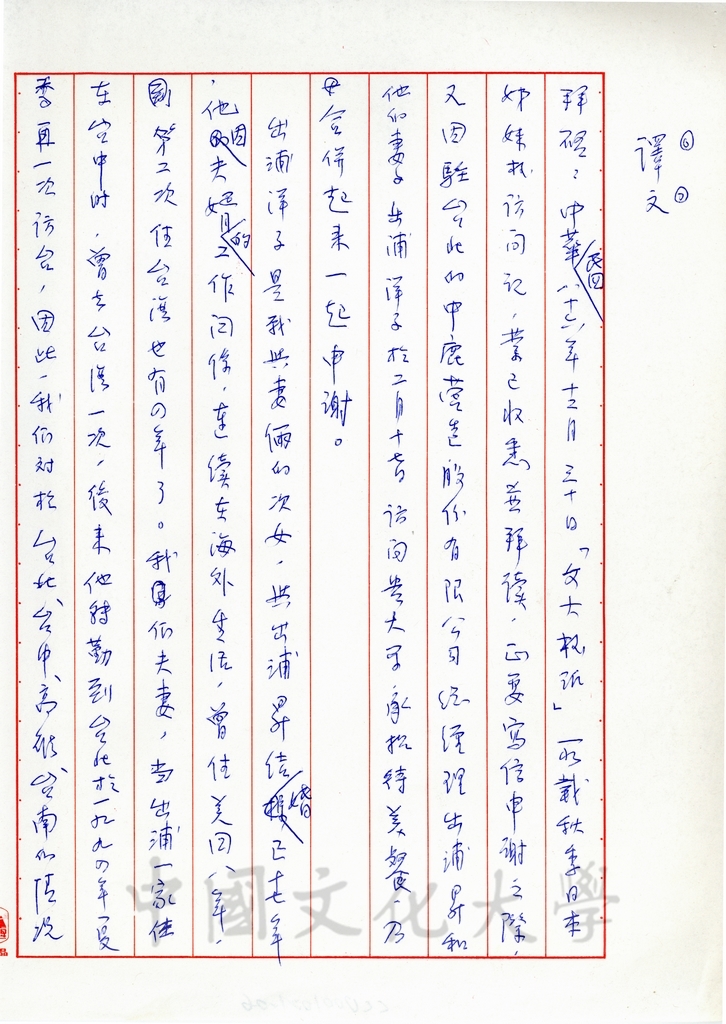 譯文
拜啓：中華民國八十六年十二月三十日「文大校訊」所載秋季日本
姊妹校訪問記，業已收悉並拜讀，正要寫信申謝之際，
又因駐台北的中鹿營造股份有限公司總經理出浦昇和
他的妻子出浦洋子於二月十七日訪問貴大學，承招待美餐，乃
合併起來一起申謝。
出浦洋子是我與妻倆的次女，與出浦昇結婚已十七年
，他因夫婿的工作関係，連續在海外生活，曾住美国八年，
第二次住台灣也有四年了。我們夫妻，當出浦一家住
在台中时，曾去台灣一次，後来他轉勤到台北於一九九四年夏
季再一次訪台，因此，我們对於台北、台中、高雄、台南的情況
中國文化大學